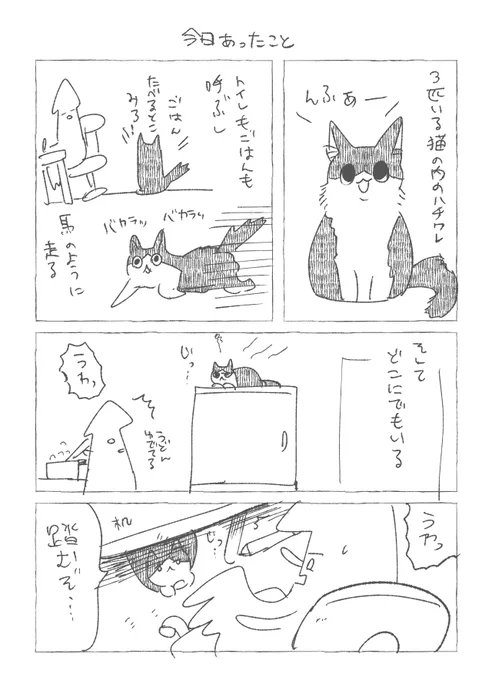 今日あったこと
3匹いる猫の内のハチワレ
んふぁー
トイレもごはんも
呼ぶし
ごはん
たべるとこ
みろ!!
バカラッ バカラッ
馬のように
走る
そして
どこにでもいる
じっ…
うどん
ゆでてる
うわっ
うわっ
じっ…
机
踏むぞ…